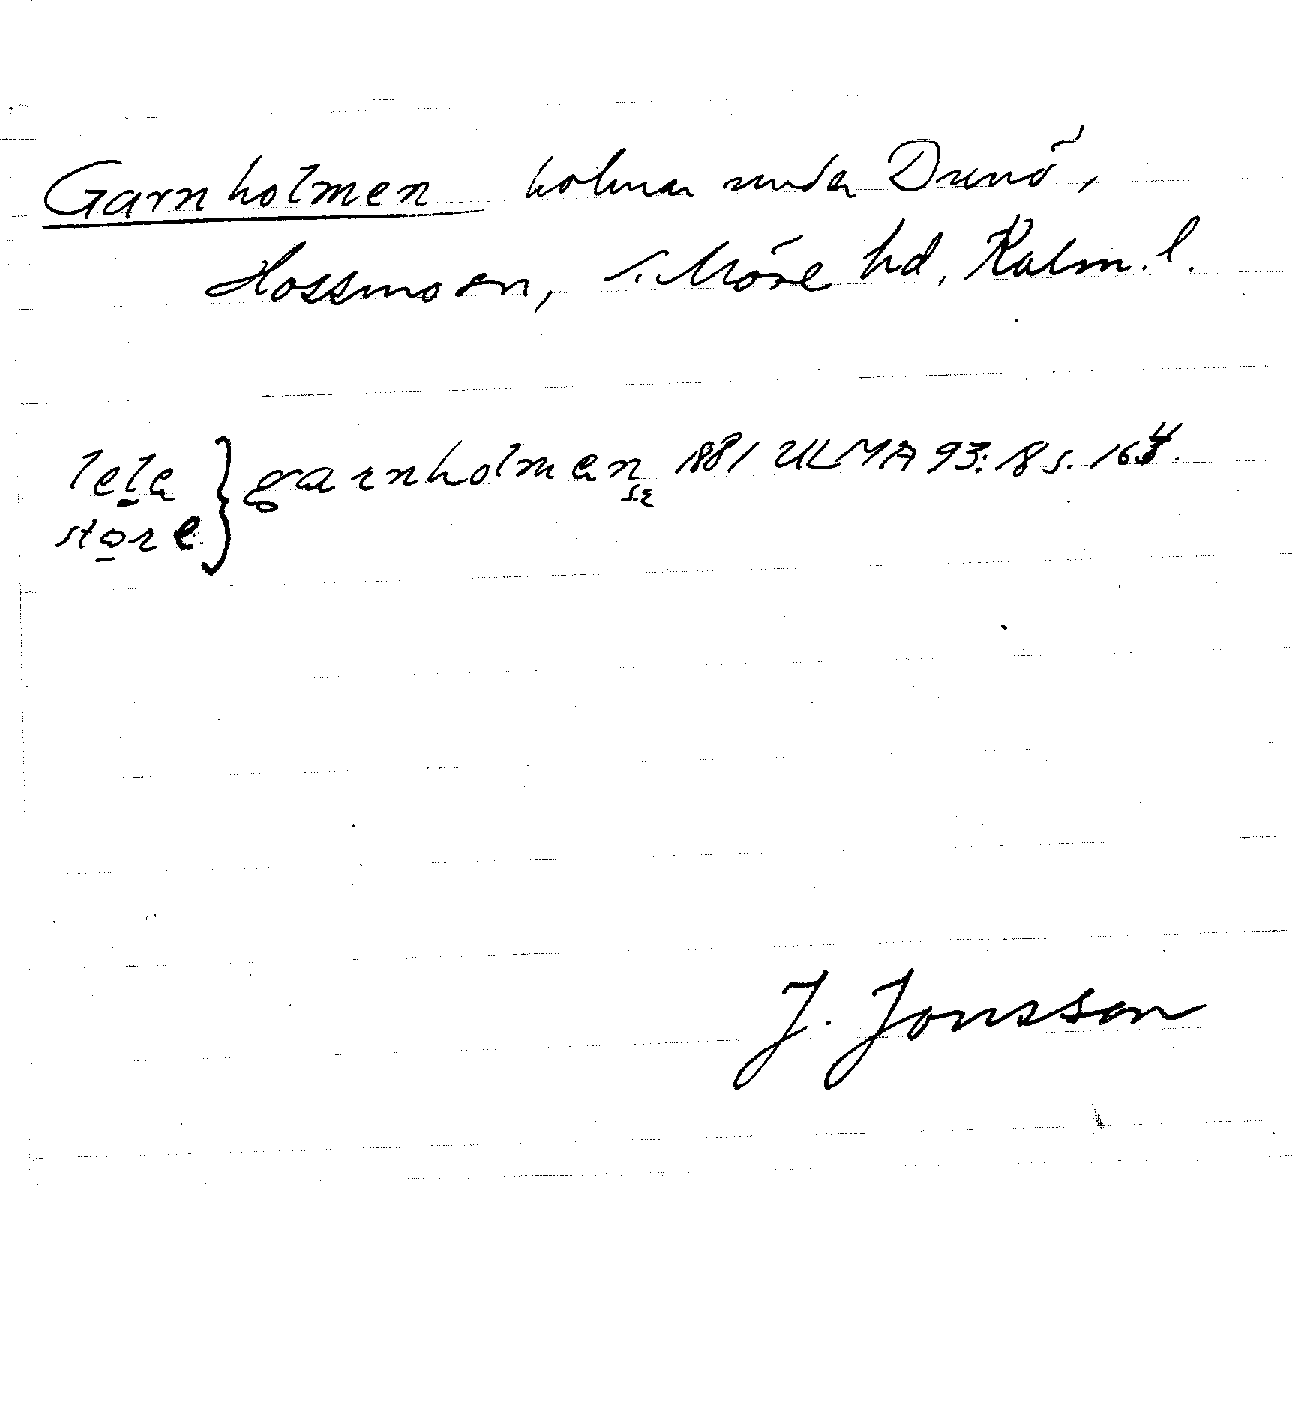 Garnholmen holmar under Dunö,
Hossmo sn, S. Möre hd, Kalm. l.
lele } garnholmen 1881 ULMA 93:18 s. 164.
store
J. Jonsson